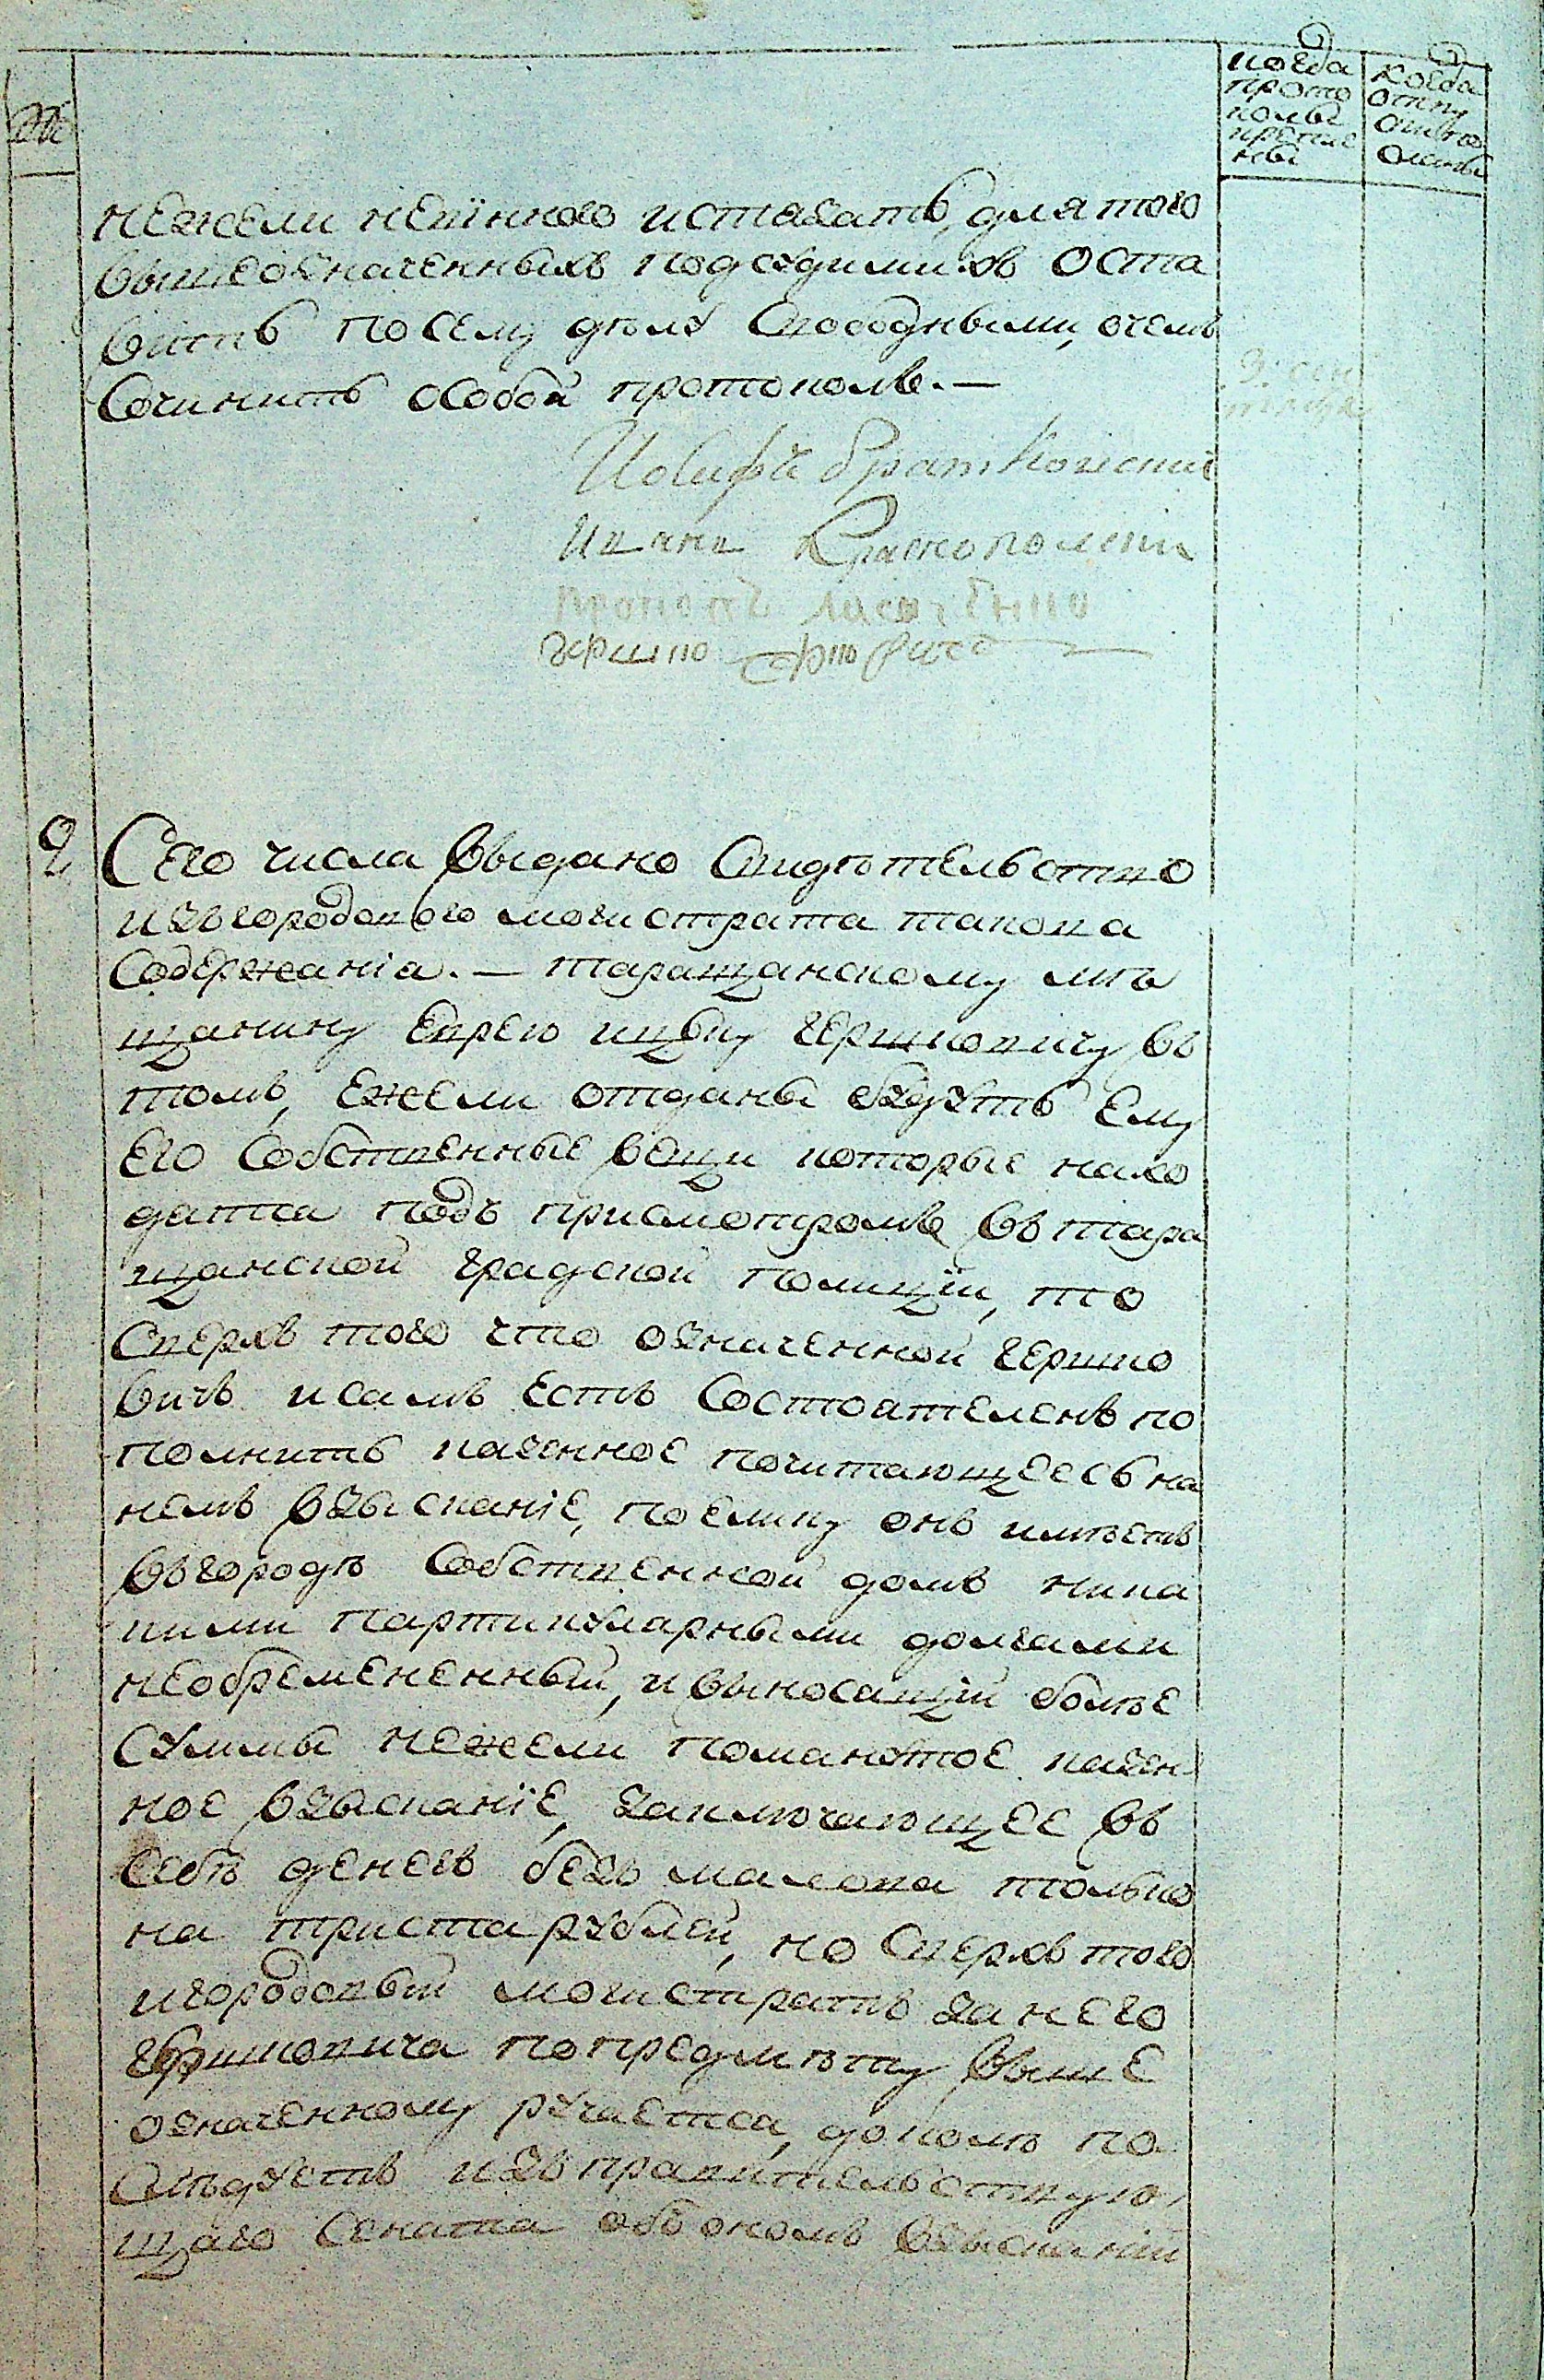 №
когда
прото
колы
крепле
ны
когда
отпу
нежели невинного истязать, для того
вышеозначенныхъ подсудимыхъ оста
вить по сему делу свободными, о чемъ
сочинить особой протоколъ. —
Иосифъ
Иванъ Краснополски
Прокопъ Лисоченко
Гершко
2
Сего числа выдано свидѣтельство
изъ городового могистрата такова
содержанїа. — таращанскому мѣ
щанину еврею ицку гершковичу въ
томъ, ежели отданы будутъ ему
его собственные вещи которые нахо
датца подъ присмотромъ въ тара
щанской градской полицїи, то
сверхъ того что означенной гершко
вичъ и самъ есть состоателенъ по
полнить казенное почитающеесь на
немъ взысканїе, поелику онъ имѣетъ
въ городѣ собственной домъ ника
кими партикуларными долгами
необремененный, и выносащїй болѣе
суммы нежели поманутое казен
ное взысканїе, заключающее въ
себѣ денегъ безъ малова только
на триста рублей, но сверхъ того
и городовый могистратъ за него
гершковича по предмѣту выше
означенному ручаетса, доколѣ по
слѣдуетъ изъ правительствую
щаго Сената объ ономъ взысканїи